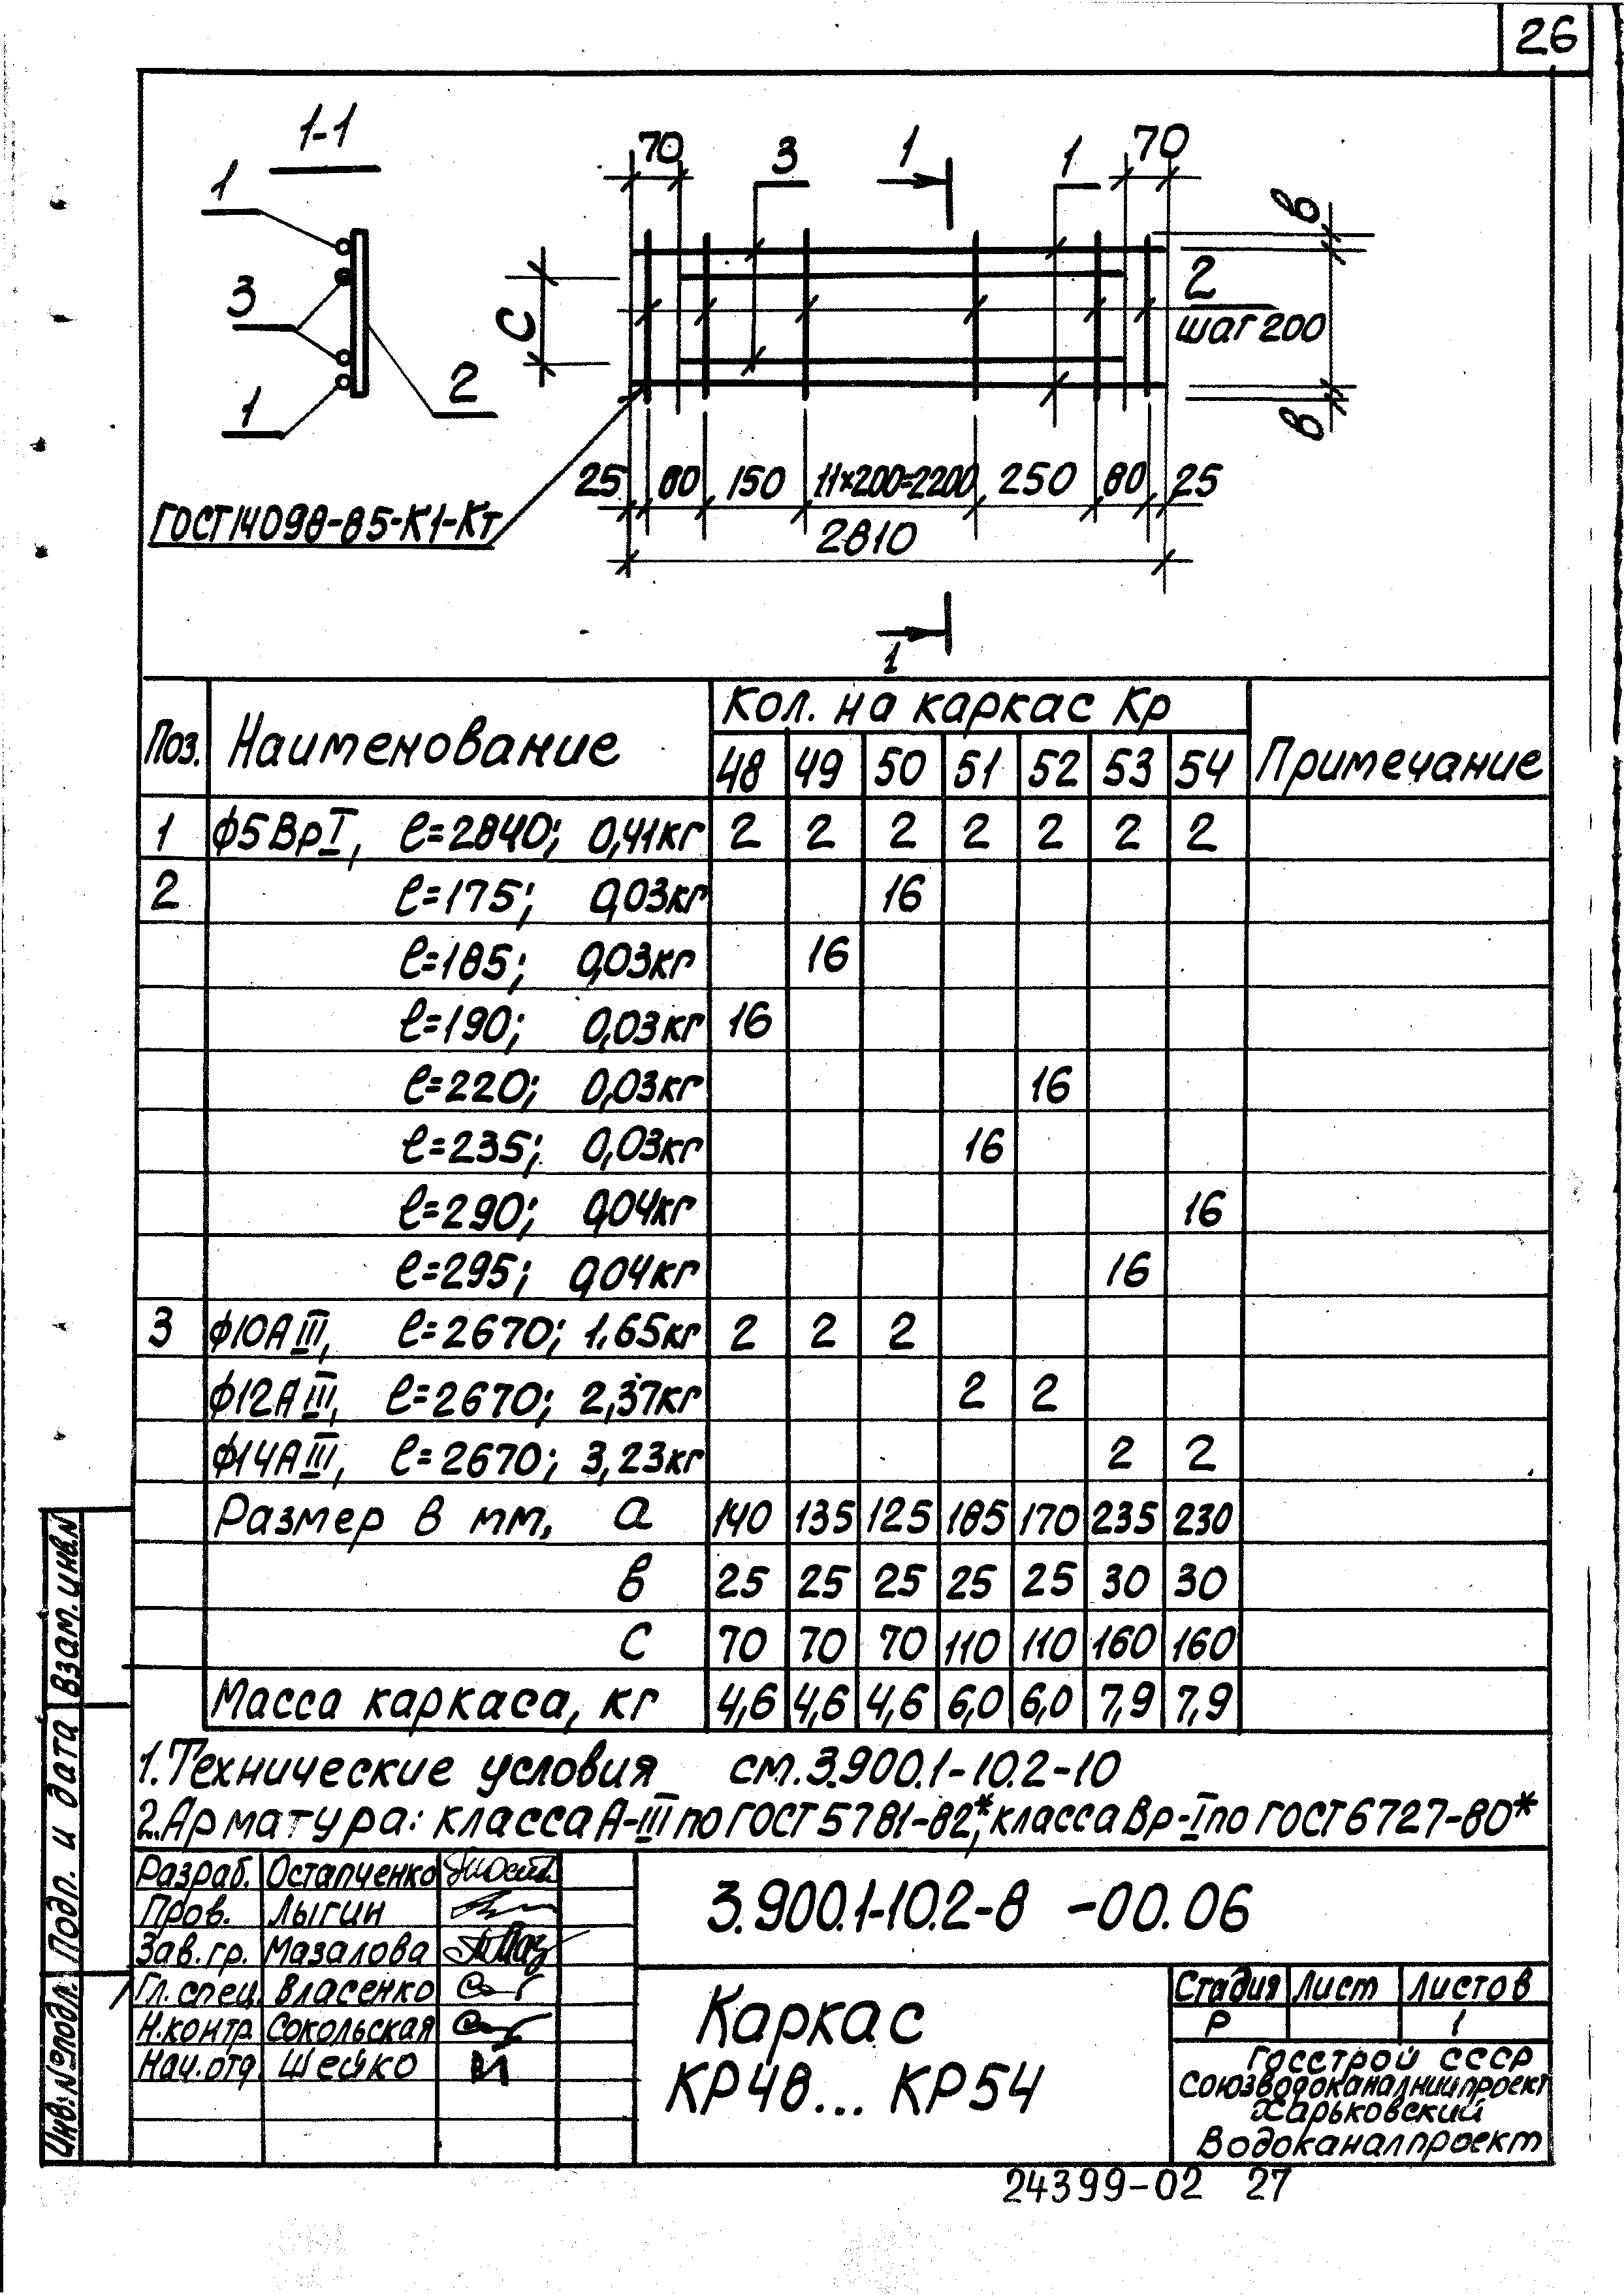 26
1-1
1
3
1
2
70 3 1 1 70
в
С
2
шаг 200
в
25 80 150 11×200=2200 250 80 25
2810
ГОСТ14098-85-К1-Кт
1
Поз. Наименование Кол. на каркас Кр Примечание
48 49 50 51 52 53 54
1 ф5ВрI, ℓ=2840; 0,41кг 2 2 2 2 2 2 2
2 ℓ=175; 0,03кг 16
ℓ=185; 0,03кг 16
ℓ=190; 0,03кг 16
ℓ=220; 0,03кг 16
ℓ=235; 0,03кг 16
ℓ=290; 0,04кг 16
ℓ=295; 0,04кг 16
3 ф10АIII, ℓ=2670; 1,65кг 2 2 2
ф12АIII, ℓ=2670; 2,37кг 2 2
ф14АIII, ℓ=2670; 3,23кг 2 2
Размер в мм, а 140 135 125 185 170 235 230
в 25 25 25 25 25 30 30
С 70 70 70 110 110 160 160
Масса каркаса, кг 4,6 4,6 4,6 6,0 6,0 7,9 7,9
1.Технические условия см.3.900.1-10.2-10
2.Арматура: класса А-III по ГОСТ 5781-82*, класса Вр-I по ГОСТ 6727-80*
Разраб. Остапченко
Пров. Лыгин
Зав.гр. Мазалова
Гл.спец. Власенко
Н.контр. Сокольская
Нач.отд Шейко
3.900.1-10.2-8 -00.06
Каркас
КР48... КР54
Стадия Лист Листов
Р 1
Госстрой СССР
Союзводоканалниипроект
Харьковский
Водоканалпроект
Взам.инв.№
Подп. и дата
Инв.№подл.
24399-02 27